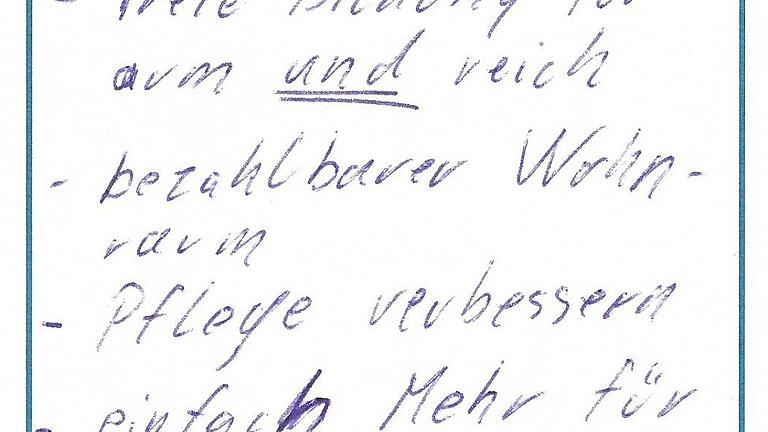 - freie Bildung für
arm und reich
- bezahlbarer Wohn-
raum
- Pflege verbessern
- einfach Mehr für